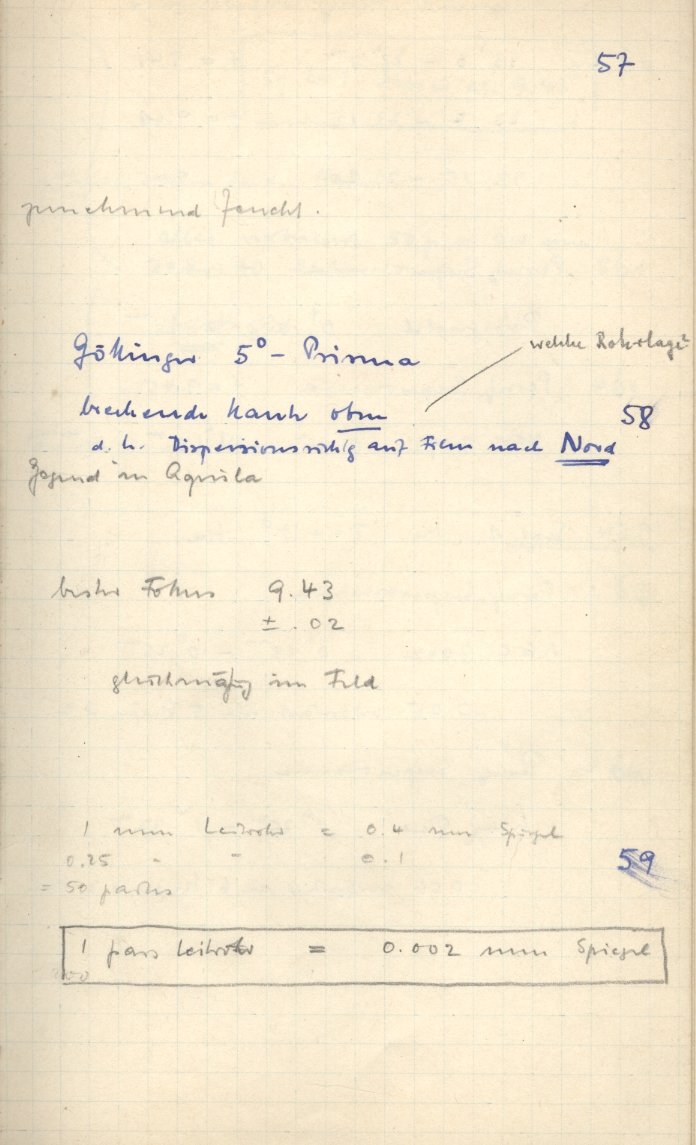 57
zunehmend feucht.
Göttinger 5° - Prisma
welche Rohrlage?
brechende Kante oben
58
d. h. Dispersionsrichtg auf Film nach Nord
Gegend in Aquila
bester Fokus 9.43
± .02
gleichmäßig im Feld
1 mm Leitrohr = 0.4 mm Spiegel
0.25 " " 0.1
59
= 50 partes
1 pars Leitrohr = 0.002 mm Spiegel